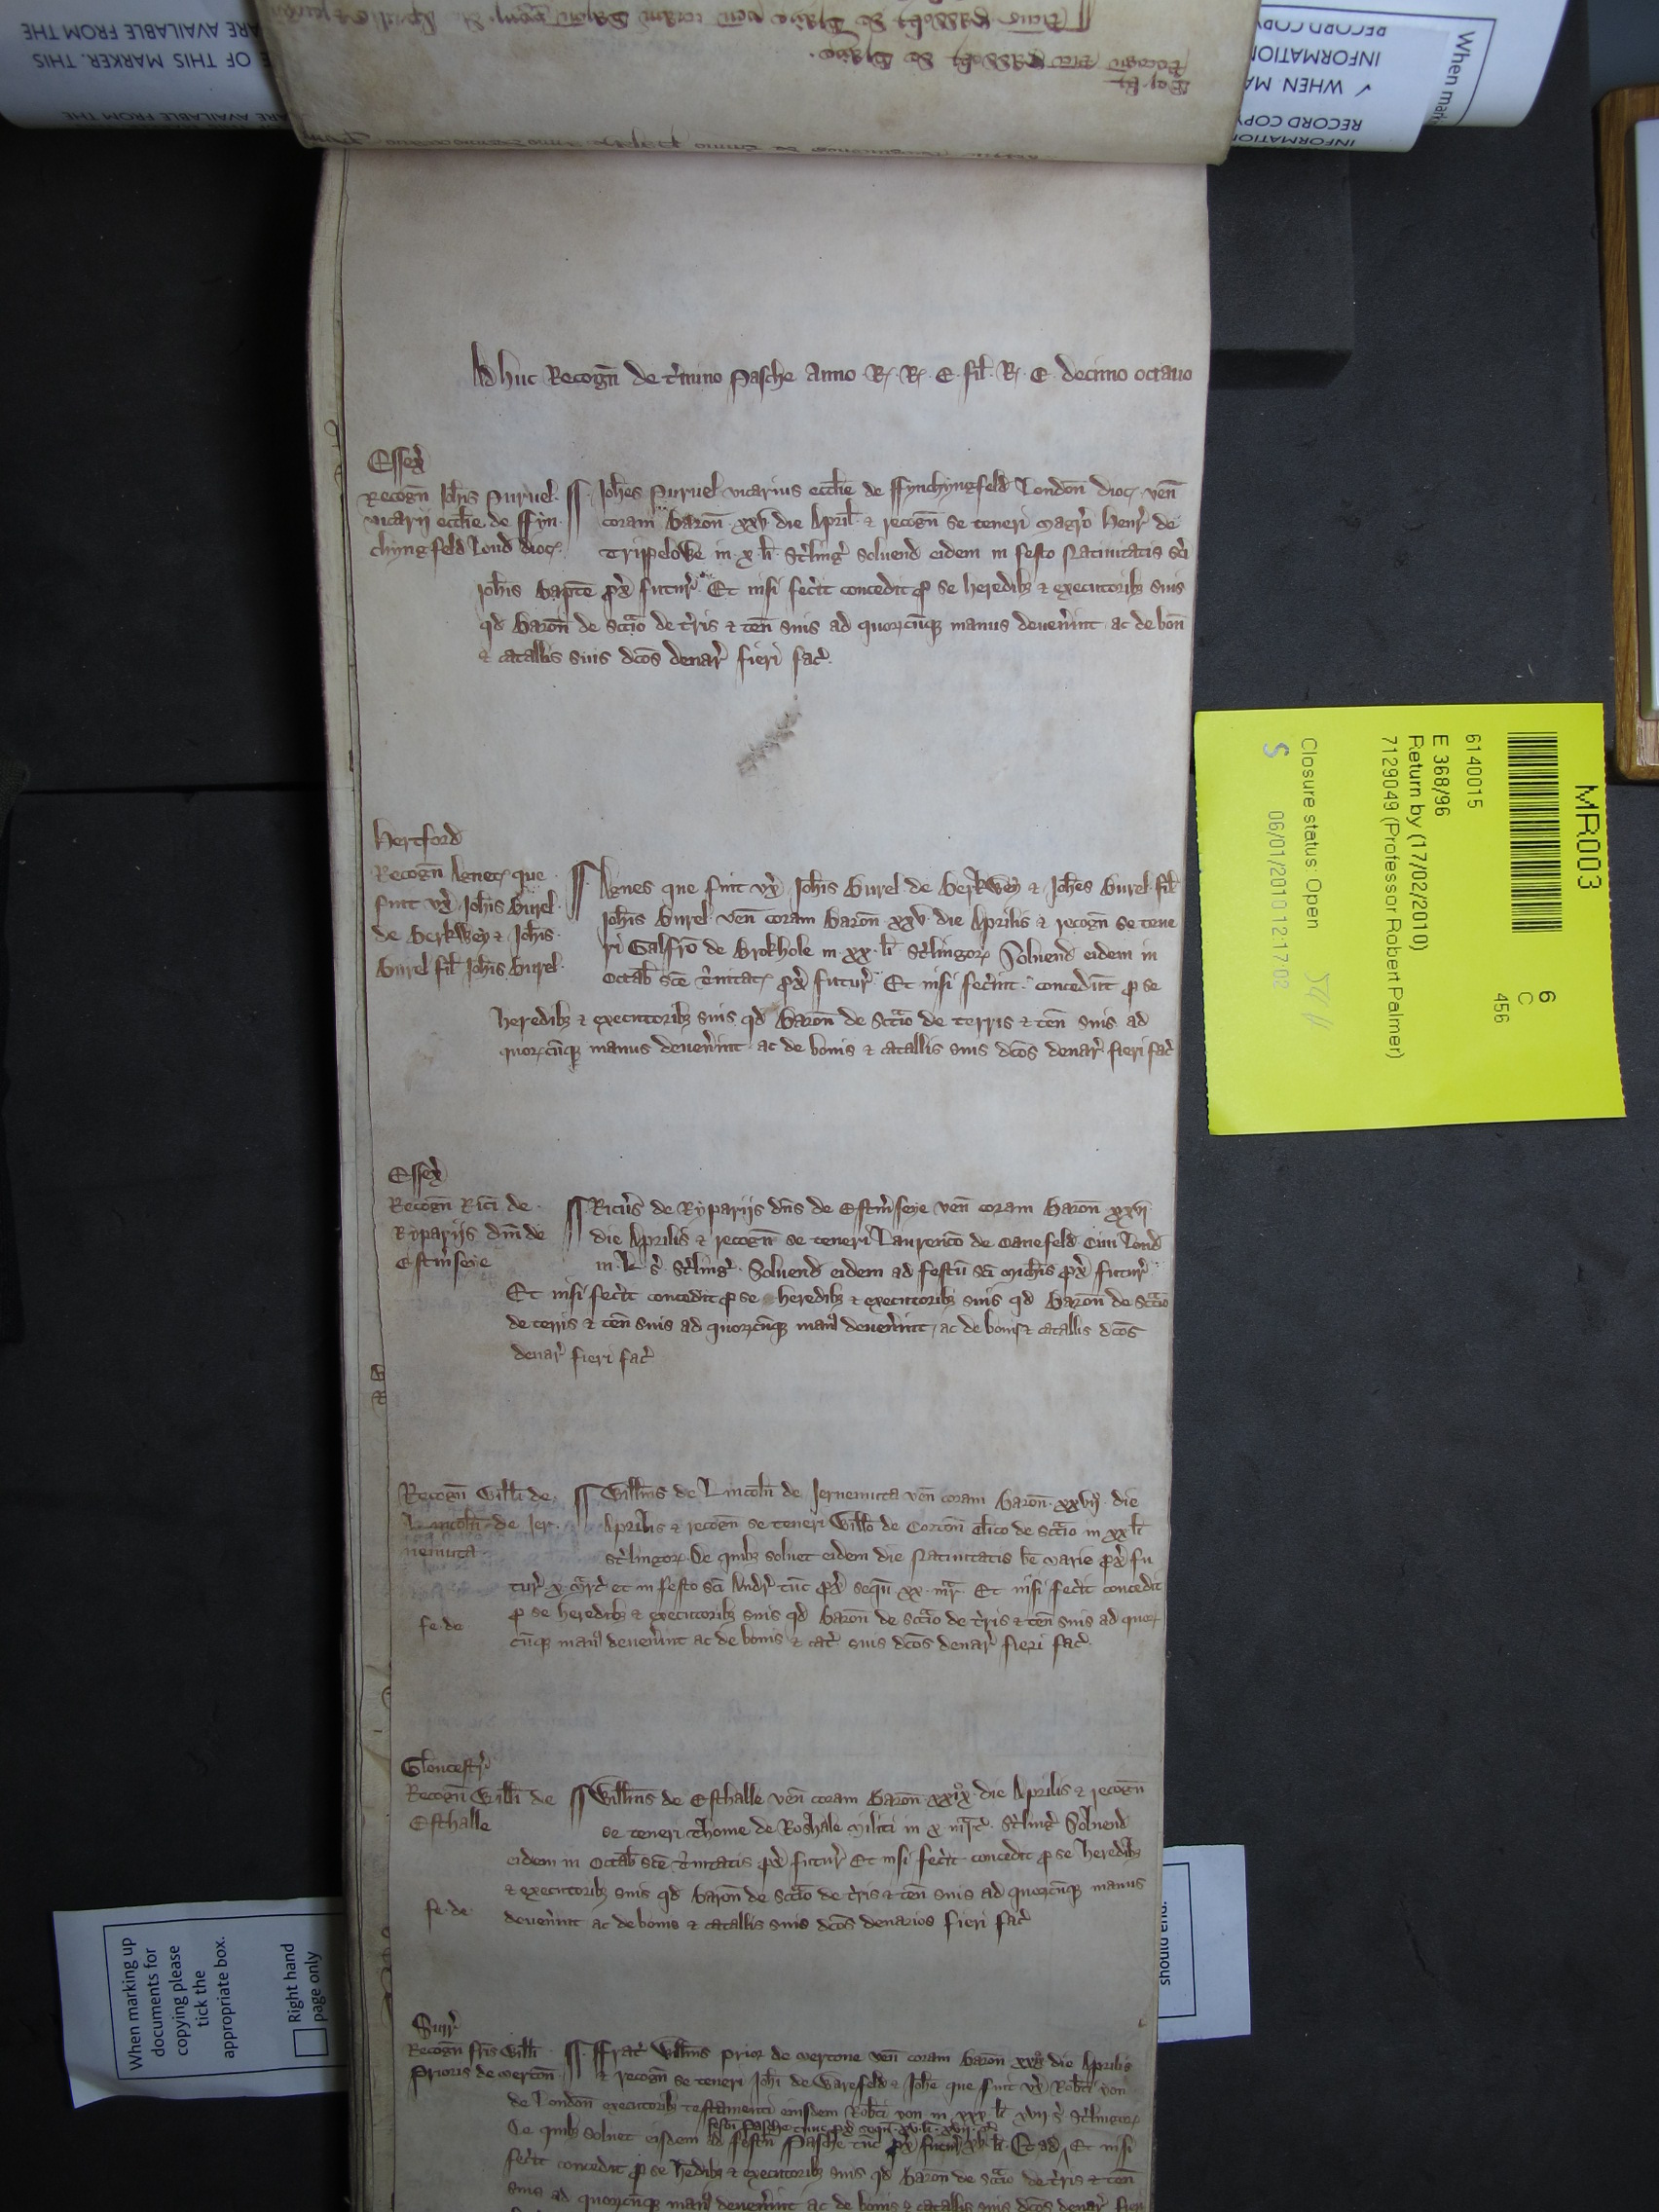 Adhuc Recogñ de t'mino Pasche Anno R. R. E. fil. R. E. decimo octauo
Essex
Recogñ Joħis Puruel
vicarij eccłie de Ffyn
chyngfeld Lond dioc
Joħes Puruel vicarius eccłie de Ffynchyngfeld Londoñ dioc veñ
coram Baroñ xxv die April & recogñ se teneri Magr̃o Henr̃ de
Trippelowe in x li St'ling soluend eidem in festo Natiuitatis sci
Joħis Bapte px̃ futur̃ Et nisi fec'it concedit p se heredibȝ & executoribȝ suis
qd Baroñ de Sccio de t'ris & teñ suis ad quorcũqȝ manus deuen'int ac de bon
& catallis suis dcos denar̃ fieri fac̃
Hertford
Recogñ Agnet que
fuit ux̃ Joħis Burel
de Berkwey & Joħis
Burel fil Joħis Burel
Agnes que fuit ux̃ Joħis Burel de Berkwey & Joħes Burel fil
Joħis Burel veñ coram Baroñ xxv die Aprilis & recogñ se tene
ri Galfro de Brokhole in xx li St'lingor Soluend eidem in
Octab sce T'initat px̃ futur̃ Et nisi fec'int concedũt p se
heredibȝ & executoribȝ suis qd Baroñ de Sccio de terris & teñ suis ad
quorcũqȝ manus deuen'int ac de bonis & catallis suis dcos denar̃ fieri fac̃
Essex
Recogñ Rici de
Ryparijs dñi de
Estm'seye
Ricus de Ryparijs dñs de Estm'seye veñ coram Baroñ xxvij
die Aprilis & recogñ se teneri Laurencõ de Canefeld Ciui Lond
in L s̃ St'ling Soluend eidem ad festũ sci Micħis px̃ futur̃
Et nisi fec'it concedit p se heredibȝ & executoribȝ suis qd Baroñ de Sccio
de terris & teñ suis ad quorcũqȝ man' deuen'int ac de bonis & catallis dcos
denar̃ fieri fac̃
Recogñ Willi de
Lincolñ de Jer
nemuta
Wiłłms de Lincolñ de Jernemuta veñ coram Baroñ xxvij die
Aprilis & recogñ se teneri Wiłło de Cortoñ cłico de Sccio in xx li
St'lingor De quibȝ soluet eidem die Natiuitatis be Marie px̃ fu
tur̃ x mr̃c et in festo sci Andr̃ tũc px̃ sequ xx mr̃ Et nisi fec'it concedit
p se heredibȝ & executoribȝ suis qd Baroñ de Sccio de t'ris & teñ suis ad quor
cũqȝ man' deuen'int ac de bonis & cat̃ suis dcos denar̃ fieri fac̃
fe. de
Gloucestr̃
Recogñ Willi de
Esthalle
Wiłłms de Esthalle veñ coram Baroñ xxix die Aprilis & recogñ
se teneri Thome de Roshale militi in x mr̃c St'ling Soluend
eidem in Octab sce T'initatis px̃ futur̃ Et nisi fec'it concedit p se heredibȝ
& executoribȝ suis qd Baroñ de Sccio de t'ris & teñ suis ad quorcũqȝ manus
deuen'int ac de bonis & catallis suis dcos denarios fieri fac̃
fe. de
Surr̃
Recogñ fr̃is Willi
Prioris de Mertoñ
Ffrat̃ Wiłłms prior de Mertone veñ coram Baroñ die Aprilis
& recogñ se teneri Joħi de Warefeld & Joħe que fuit ux̃ Robti
de Londoñ executoribȝ testamenti eiusdem Robti in xxx li St'lingor
festũ Pasche tunc px̃
De quibȝ soluet eisdem ad festũ Pasche tũc px̃ futur̃ xv li Et ad Et nisi
fec'it concedit p se hedibȝ & executoribȝ suis qd Baroñ de Sccio de t'ris & teñ
suis ad quorcũqȝ man' deuen'int ac de bonis & catallis suis dcos denar̃ fieri
MR003
6
C
456
6140015
E 368/96
Return by (17/02/2010)
7129049 (Professor Robert Palmer)
Closure status: Open
S
06/01/2010 12:17:02
When marking up
documents for
copying please
tick the
appropriate box.
Right hand
page only
should end.
When mark
✓ WHEN MA
INFORMATION
RECORD COPY
OF THIS MARKER. THIS
ARE AVAILABLE FROM THE
ARE AVAILABLE FROM THE
INFORMATION
RECORD COPY